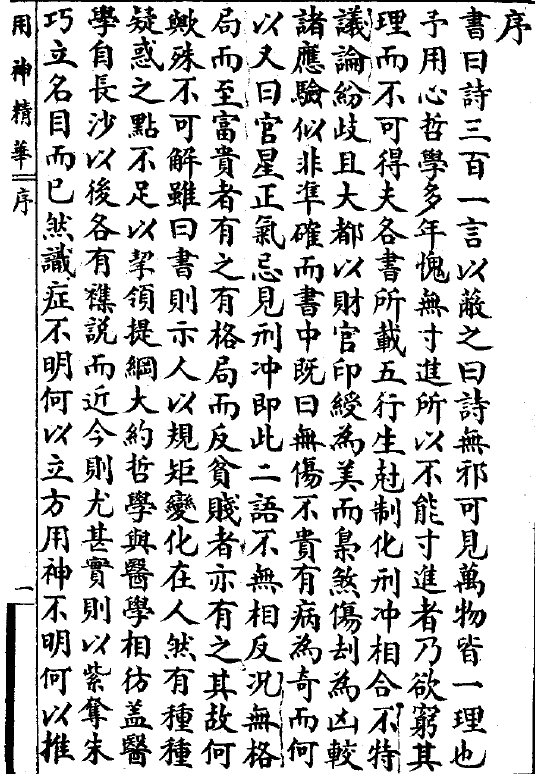 序
書曰詩三百一言以蔽之曰詩無邪可見萬物皆一理也
予用心哲學多年愧無寸進所以不能寸進者乃欲窮其
理而不可得夫各書所載五行生尅制化刑冲相合不特
議論紛歧且大都以財官印綬為美而梟煞傷刦為凶較
諸應驗似非準確而書中既曰無傷不貴有病為奇而何
以又曰官星正氣忌見刑冲即此二語不無相反況無格
局而至富貴者有之有格局而反貧賤者亦有之其故何
歟殊不可解雖曰書則示人以規矩變化在人然有種種
疑惑之點不足以挈領提綱大約哲學與醫學相彷蓋醫
學自長沙以後各有襍説而近今則尤甚實則以紫奪朱
巧立名目而已然識症不明何以立方用神不明何以推
用神精華 序 一